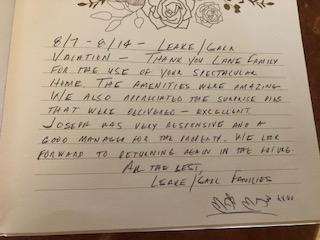 8/7 - 8/14 - LEAKE/GARL
VACATION - THANK YOU LANE FAMILY
FOR THE USE OF YOUR SPECTACULAR
HOME. THE AMENITIES WERE AMAZING.
WE ALSO APPRECIATED THE SURPRISE PIES
THAT WERE DELIVERED - EXCELLENT.
JOSEPH WAS VERY RESPONSIVE AND A
GOOD MANAGER FOR THE PROPERTY. WE LOOK
FORWARD TO RETURNING AGAIN IN THE FUTURE.
ALL THE BEST,
LEAKE/GARL FAMILIES